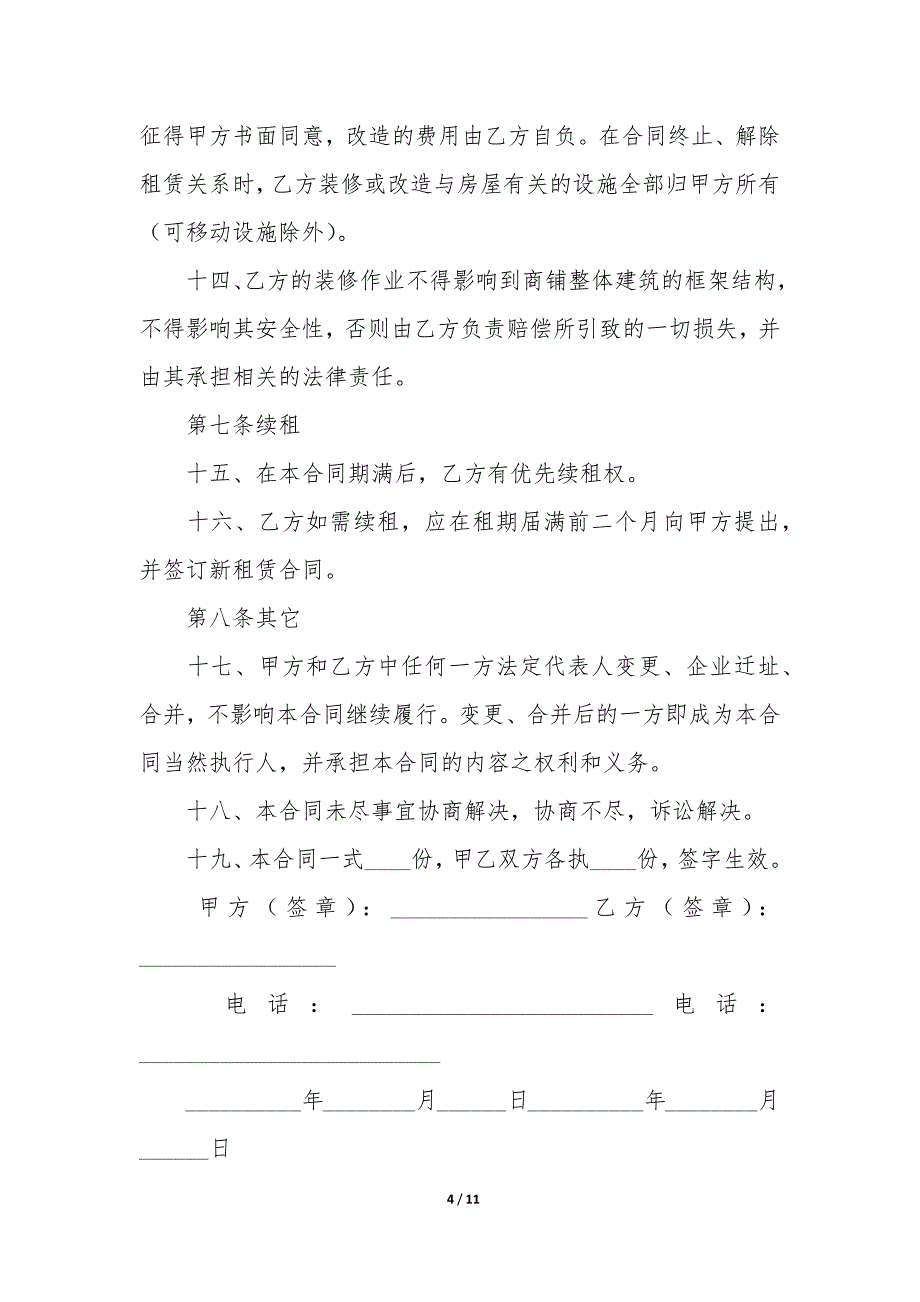 征得甲方书面同意，改造的费用由乙方自负。在合同终止、解除
租赁关系时，乙方装修或改造与房屋有关的设施全部归甲方所有
（可移动设施除外）。
十四、乙方的装修作业不得影响到商铺整体建筑的框架结构，
不得影响其安全性，否则由乙方负责赔偿所引致的一切损失，并
由其承担相关的法律责任。
第七条续租
十五、在本合同期满后，乙方有优先续租权。
十六、乙方如需续租，应在租期届满前二个月向甲方提出，
并签订新租赁合同。
第八条其它
十七、甲方和乙方中任何一方法定代表人变更、企业迁址、
合并，不影响本合同继续履行。变更、合并后的一方即成为本合
同当然执行人，并承担本合同的内容之权利和义务。
十八、本合同未尽事宜协商解决，协商不尽，诉讼解决。
十九、本合同一式____份，甲乙双方各执____份，签字生效。
甲方（签章）：_________________乙方（签章）：
_________________
电话：__________________________电话：
__________________________
__________年________月______日__________年________月
______日
4 / 11